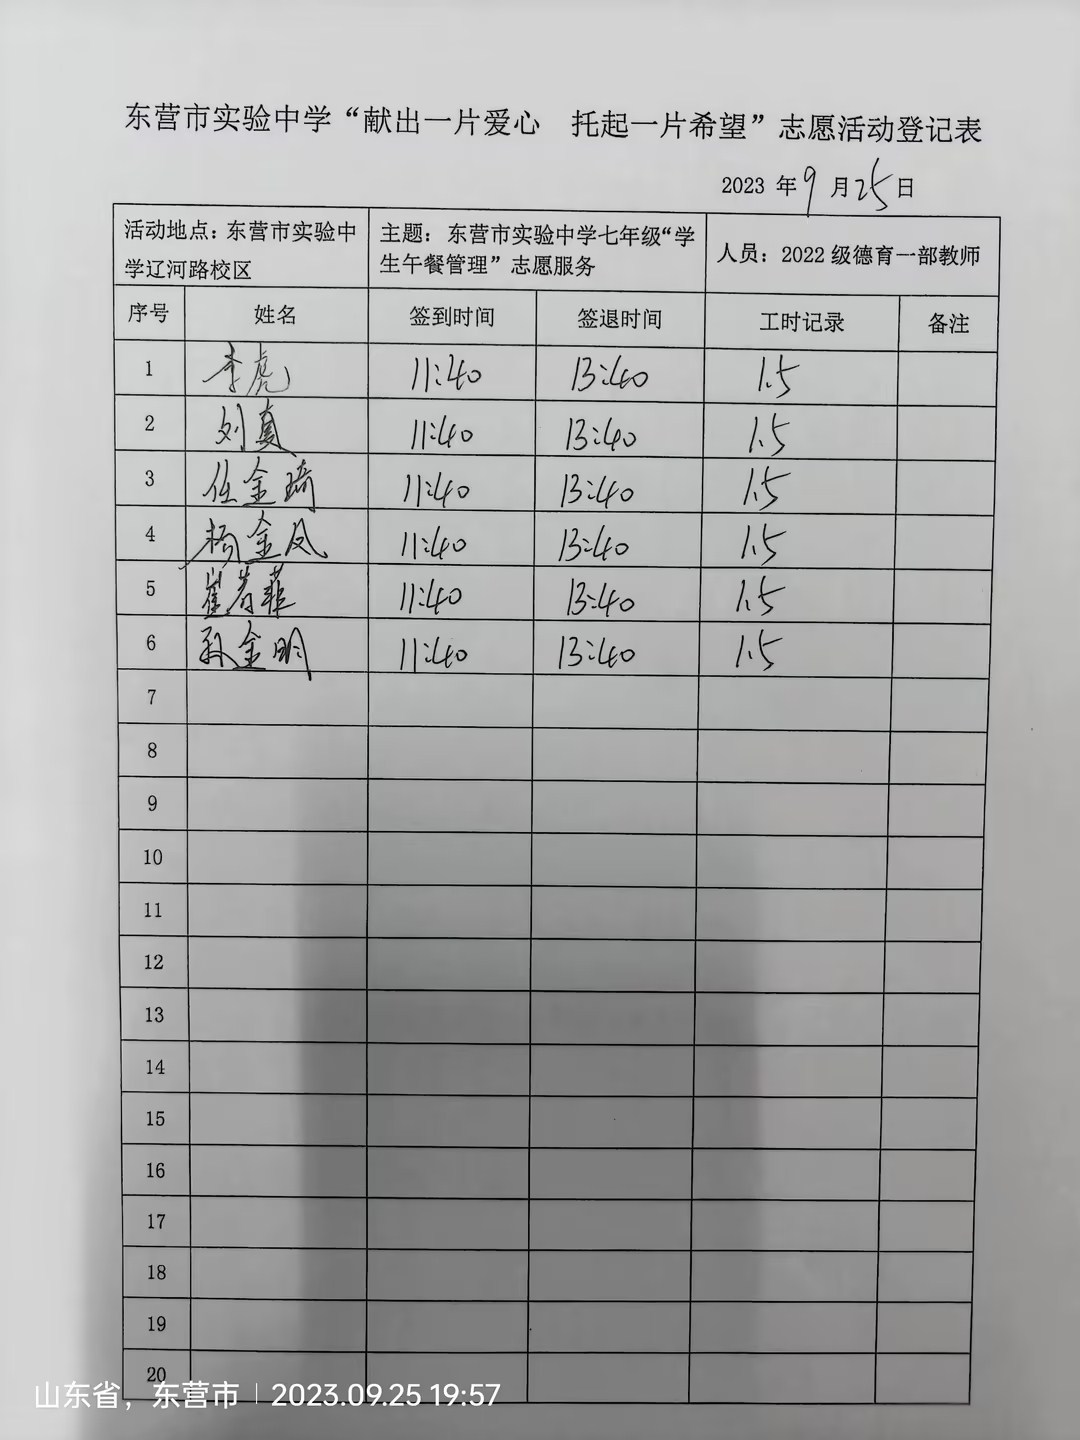 东营市实验中学“献出一片爱心 托起一片希望”志愿活动登记表
2023 年 9 月 25 日
活动地点：东营市实验中学辽河路校区 主题：东营市实验中学七年级“学生午餐管理”志愿服务 人员：2022 级德育一部教师
序号 姓名 签到时间 签退时间 工时记录 备注
1 李虎 11:40 13:40 1.5
2 刘真 11:40 13:40 1.5
3 任金琦 11:40 13:40 1.5
4 杨金凤 11:40 13:40 1.5
5 崔春菲 11:40 13:40 1.5
6 孙金明 11:40 13:40 1.5
7
8
9
10
11
12
13
14
15
16
17
18
19
20
山东省，东营市 | 2023.09.25 19:57